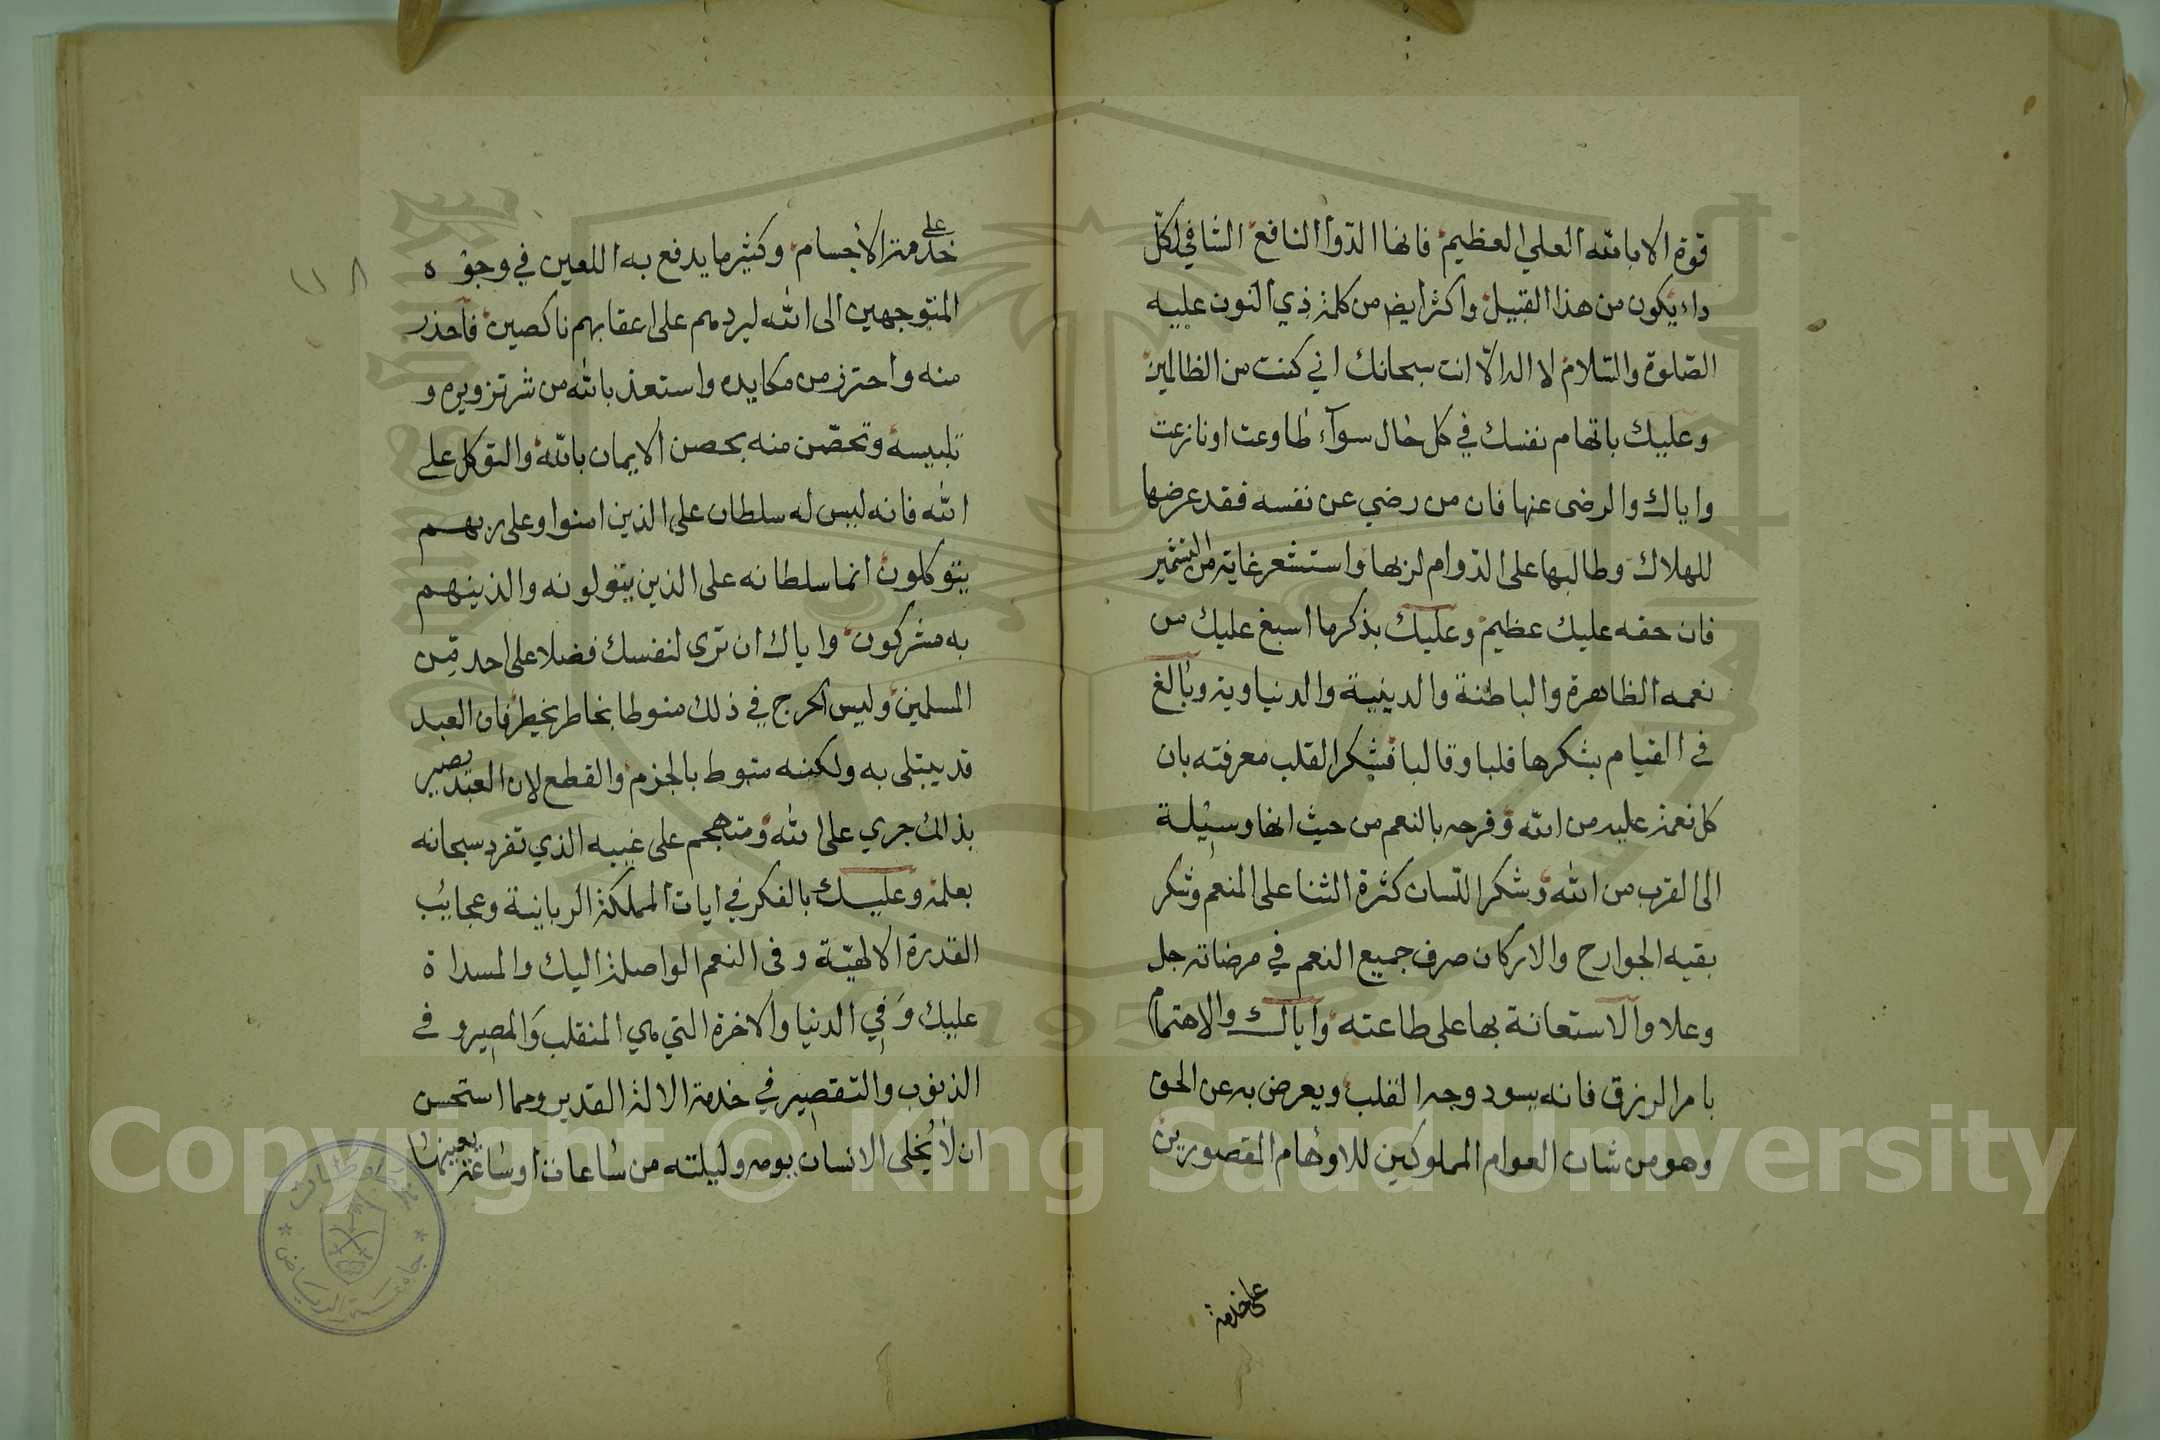 قوة الا بالله العلي العظيم فانها الدوا النافع الشافي لكل
داء يكون من هذا القبيل واكثر ايضا من كلمة ذي النون عليه
الصلوة والسلام لا اله الا انت سبحانك اني كنت من الظالمين
وعليك باتهام نفسك في كل حال سوآء طاوعت او نازعت
واياك والرضى عنها فان من رضي عن نفسه فقد عرضها
للهلاك وطالبها على الدوام لربها واستشعر غاية من التشمير
فان حقه عليك عظيم وعليك بذكر ما اسبغ عليك من
نعمه الظاهرة والباطنة والدينية والدنياوية وبالغ
في القيام بشكرها قلبا وقالبا فشكر القلب معرفته بان
كل نعمة عليه من الله وفرحه بالنعم من حيث انها وسيلة
الى القرب من الله وشكر اللسان كثرة الثنا على المنعم وشكر
بقيه الجوارح والاركان صرف جميع النعم في مرضاته جل
وعلا والاستعانة بها على طاعته واياك والاهتمام
بامر الرزق فانه يسود وجه القلب ويعرض به عن الحق
وهو من شان العوام المملوكين للاوهام المقصورين
على خدمة
على
خدمة الاجسام وكثير ما يدفع به اللعين في وجوه
المتوجهين الى الله ليردهم على اعقابهم ناكصين فاحذر
منه واحترز من مكايده واستعذ بالله من شر تزويره و
تلبيسه وتحصن منه بحصن الايمان بالله والتوكل على
الله فانه ليس له سلطان على الذين امنوا وعلى ربهم
يتوكلون انما سلطانه على الذين يتولونه والذينهم
به مشركون واياك ان ترى لنفسك فضلا على احد من
المسلمين وليس الحرج في ذلك منوطا بخاطر يخطر فان العبد
قد يبتلى به ولكنه منوط بالجزم والقطع لان العبد يصير
بذالك جري على الله ومتهجم على غيبه الذي تفرد سبحانه
بعلمه وعليك بالفكر في ايات المملكة الربانية وعجايب
القدرة الالهية وفى النعم الواصلة اليك والمسداة
عليك وفي الدنيا والاخرة التي هي المنقلب والمصير وفي
الذنوب والتقصير في خدمة الاله القدير ومما استحسن
ان لا يخلى الانسان يومه وليلته من ساعات او ساعة يعينها
١٨
جامعة الرياض
Copyright © King Saud University